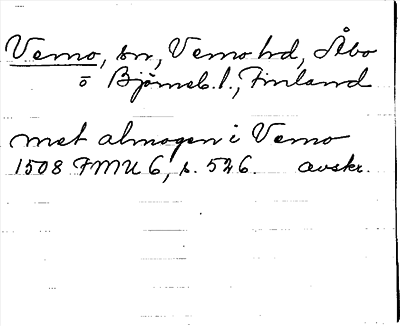 Vemo, sn, Vemo hd, Åbo
o Björneb. l., Finland
met almogen i Vemo
1508 FMU 6, s. 526. avskr.